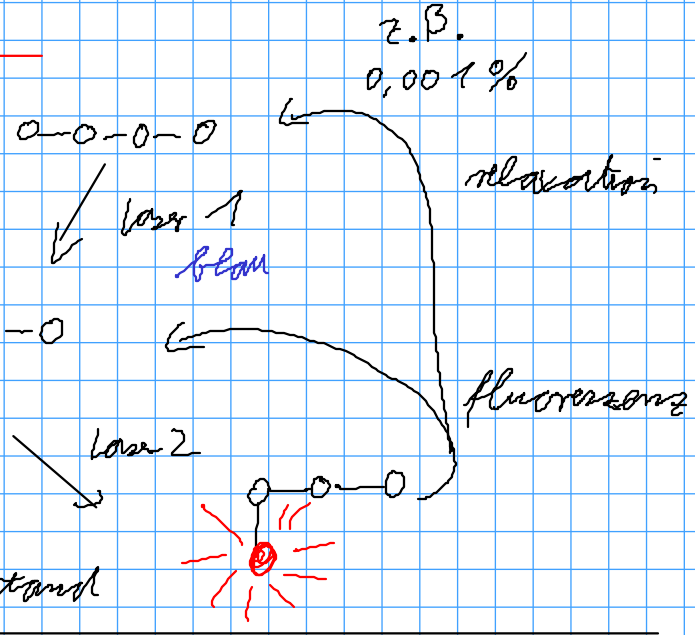 z.B.
0,001%
relaxation
Laser 1
blau
fluoreszenz
Laser 2
tand